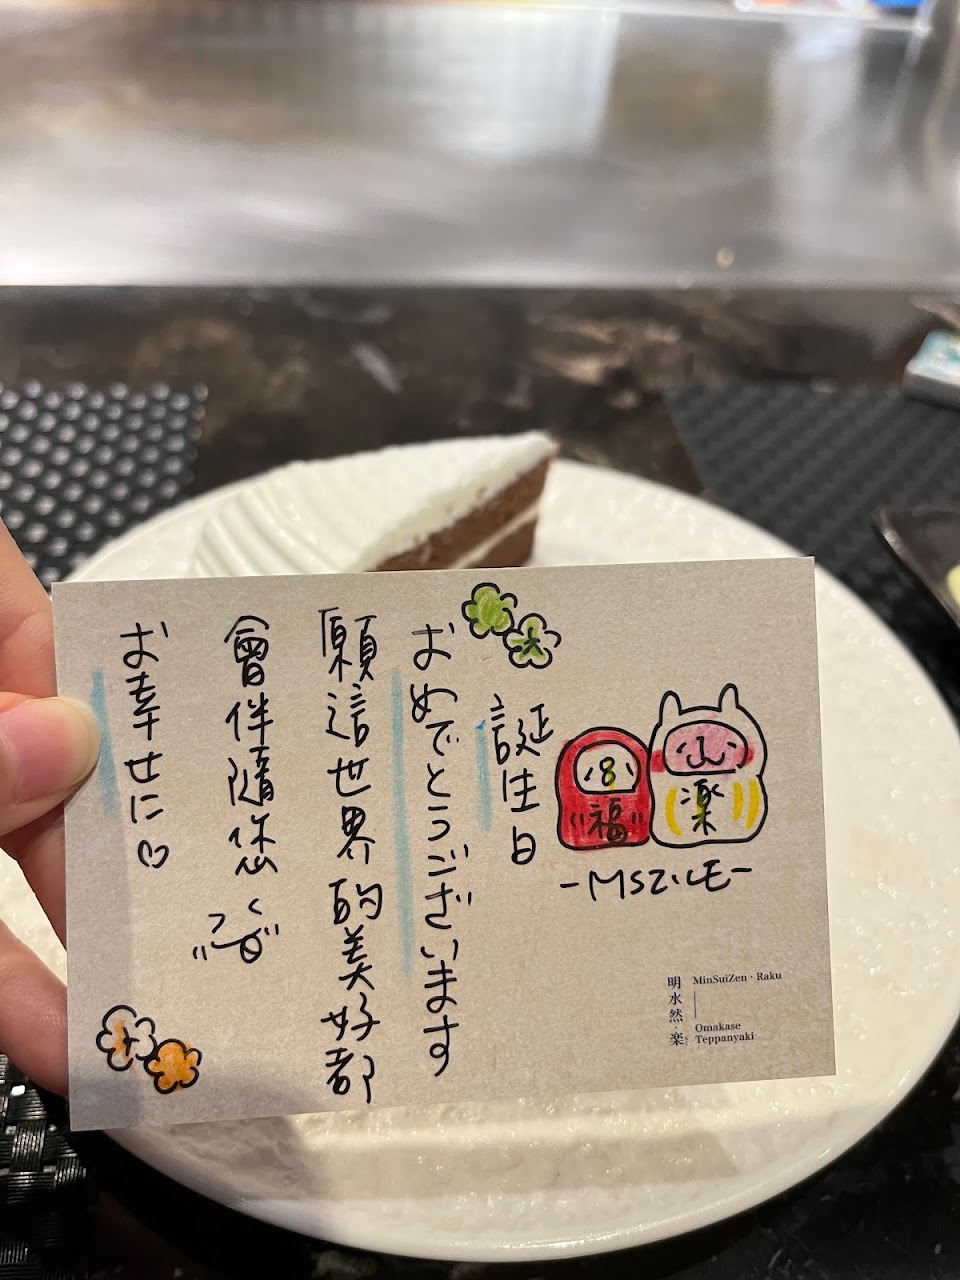 誕生日
おめでとうございます
願這世界的美好都
會伴隨您
お幸せに♡
福
楽
明水然・楽
MinSuiZen・Raku
Omakase
Teppanyaki